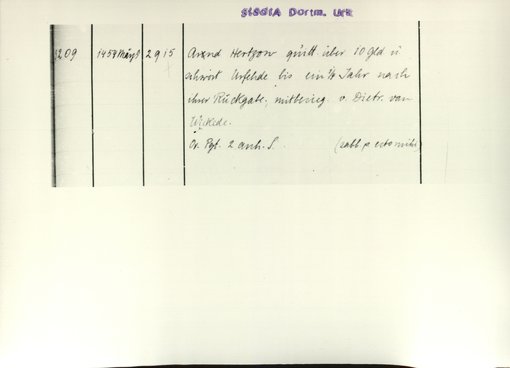 StadtA Dortm. Urk
1209 1454 März 9 2915 Arnd Hertzow quitt. über 10 Gld u.
schwört Urfehde bis ein ½ Jahr nach
ihrer Rückgabe, mitbesieg. v. Dietr. van
Wickede.
Or. Pgt. 2 anh. S. (sabb p octo mihi)